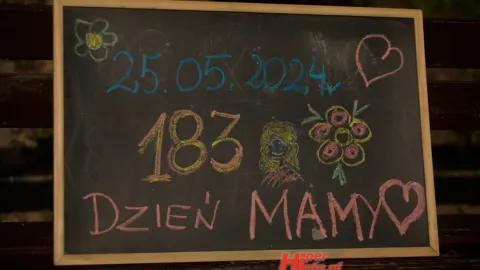 25.05.2024r
183
DZIEŃ MAMY